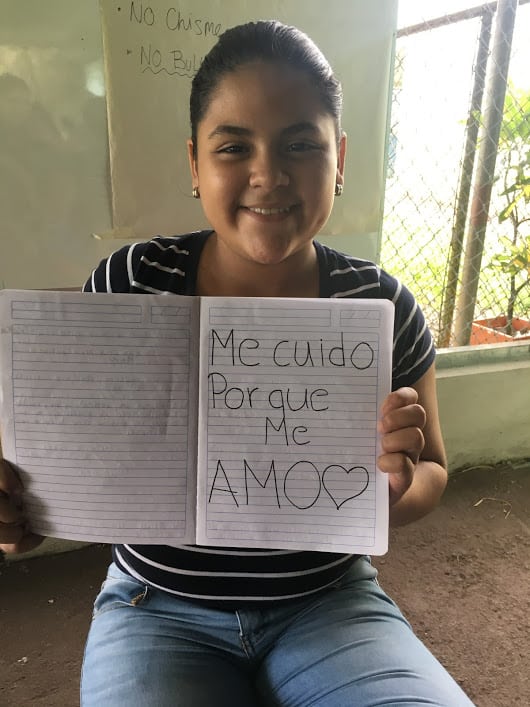 No Chisme
No
Me cuido
Por que
Me
AMO